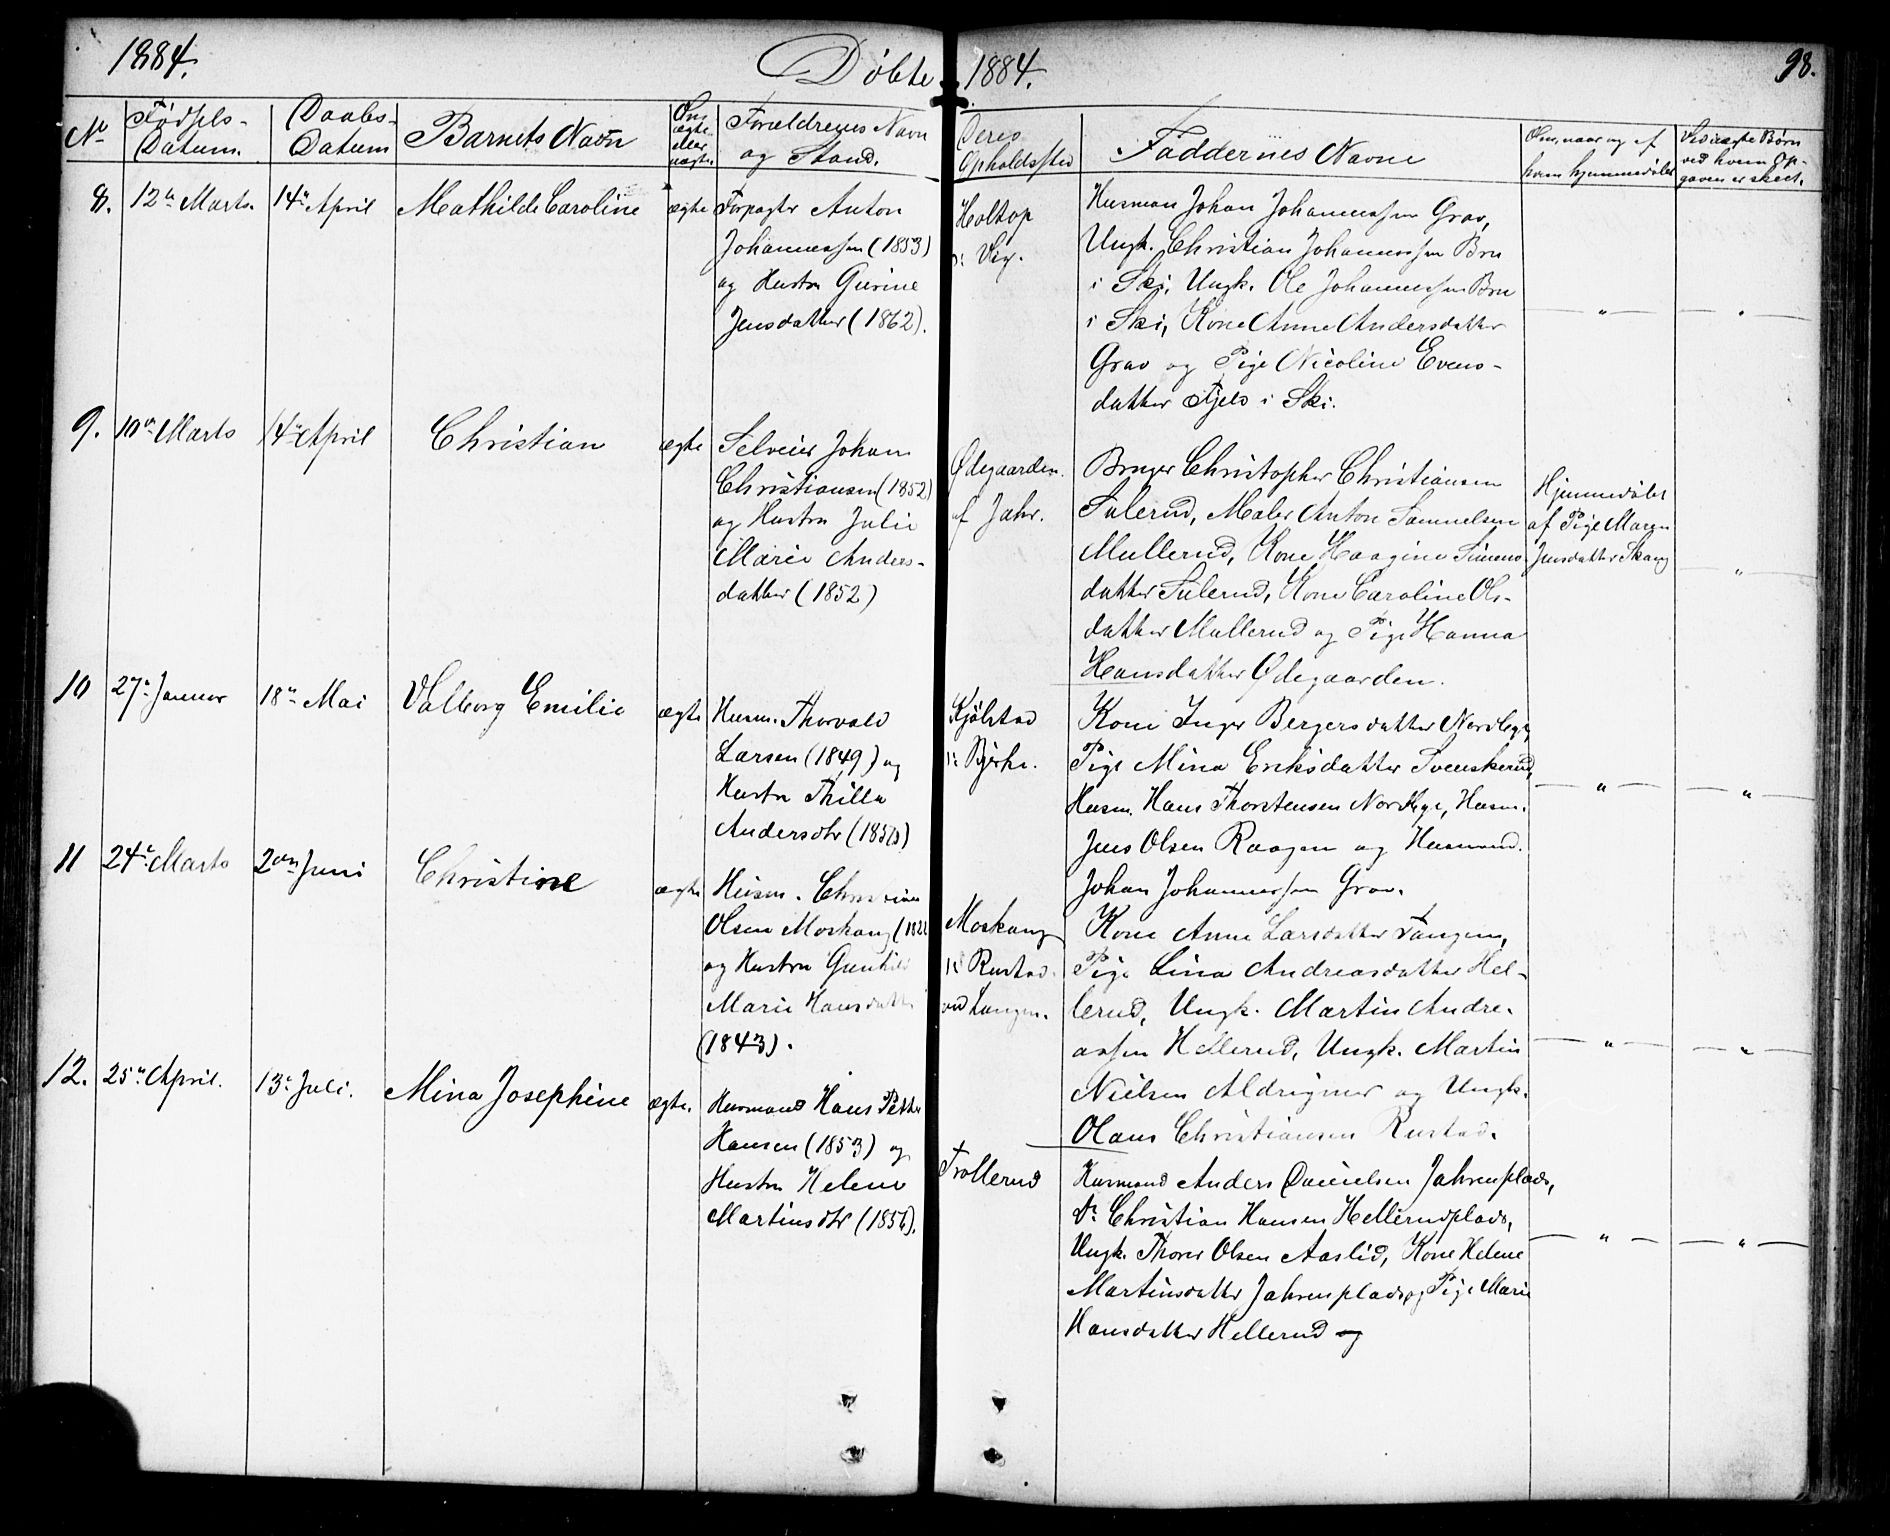 1884.
Døbte
1884.
98.
No
Fødsels-
Datum.
Daabs-
Datum
Barnets Navn
Om
ægte
eller
uægte.
Forældrenes Navn
og Stand.
Deres
Opholdssted
Faddernes Navne
Om, naar og af
hvem hjemmedøbt
Ved uægte Børn
ved hvem Op-
gaven er skeet.
8.
12te Marts.
14de April
Mathilde Caroline
ægte
Forpagter Anton
Johannessen (1853)
og Hustru Gurine
Jensdatter (1862).
Holtop
i Vig.
Husman Johan Johannessen Grav,
Ungk. Christian Johannessen Bru
i Ski, Ungk. Ole Johannessen Bru
i Ski, Kone Anne Andersdatter
Grav og Pige Nicoline Evens-
datter Fjeld i Ski.
9.
10de Marts
14de April
Christian
ægte
Selveier Johan
Christiansen (1852)
og Hustru Julie
Marie Anders-
datter (1852)
Ødegaarden
af Jahr.
Bruger Christopher Christiansen
Sulerud, Maler Anton Samuelsen
Mullerud, Kone Haagine Simens-
datter Sulerud, Kone Caroline Ols-
datter Mullerud og Pige Hanna
Hansdatter Ødegaarden.
Hjemmedøbt
af Pige Maren
Jensdatter Skaug
10
27de Januar
18de Mai
Valborg Emilie
ægte
Husm. Thorvald
Larsen (1849) og
Hustru Thilla
Andersdtr
Kjølstad
i Bjerke.
Kone Inger Bergersdatter Nordbye,
Pige Mina Eriksdatter Svenskerud,
Husm. Hans Thorstensen Nordbye, Husm.
Jens Olsen Raagen og Husmand.
Johan Johannessen Grav.
11
24de Marts
2den Juni
Christine
ægte
Husm. Christian
Olsen Moskaug
og Hustru Gunhild
Marie Hansdatter
(1843).
Moskaug
Rustad
ved Langen.
Kone Anne Larsdatter Tangen,
Pige Lina Andreasdatter Hel-
lerud, Ungk. Martin Andre-
assen Hellerud, Ungk. Martin
Nielsen Aldrigmer og Ungk.
Olaus Christiansen Rustad.
12.
25de April.
13de Juli.
Mina Josephine
ægte.
Husmand Hans Petter
Hansen (1853) og
Hustru Helene
Martinsdtr (1856).
Trollerud
Husmand Anders Danielsen Jahrenplads,
Do Christian Hansen Hellerudplads,
Ungk. Thorer Olsen Aaslid, Kone Helene
Martinsdatter Jahrenplads og Pige Marie
Hansdatter Hellerud og